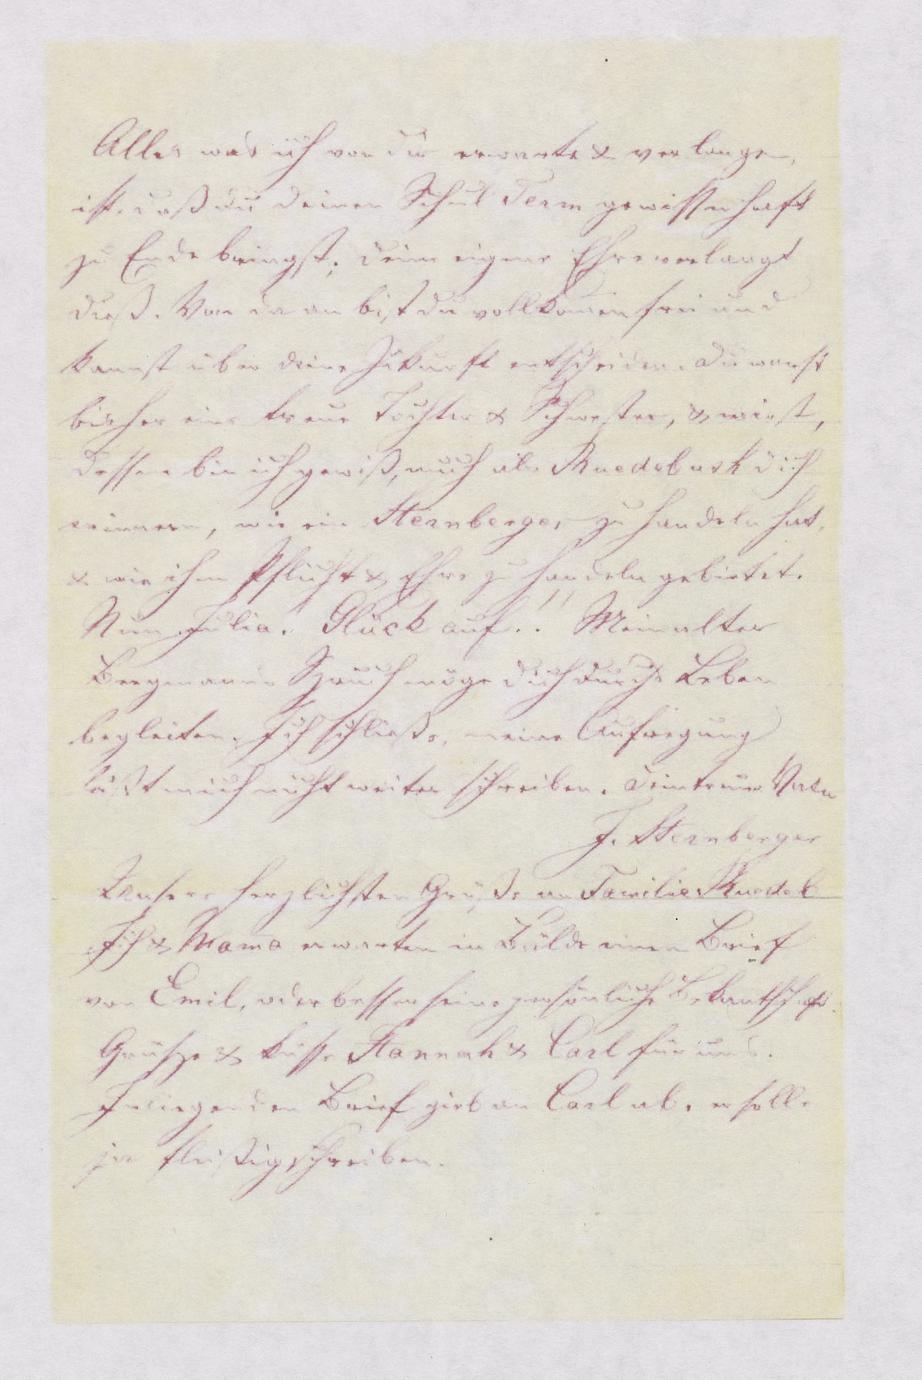 Alles was ich von dir erwarte & verlange,
ist, daß du deinen Schul Term gewissenhaft
zu Ende bringst; deine eigene Ehre verlangt
dieß. Von da an bist du vollkomen frei und
kannst über deine Zukunft entscheiden. Du warst
bisher eine treue Tochter & Schwester, & wirst,
dessen bin ich gewiß, auch als Ruedebusch dich
erinnern, wie ein Sternberger zu handeln hat,
& wie ihm Pflicht & Ehre zu handeln gebietet.
Nun Julia! Glück auf!! Mein alter
Bergmanns Spruch möge dich durchs Leben
begleiten. Ich schließe, meine Aufregung
läßt mich nicht weiter schreiben. Dein treuer Vater
J. Sternberger
Unsere herzlichsten Grüße an Familie Ruedeb
Ich & Mama erwarten in Bälde einen Brief
von Emil, oder besser seine persönliche Bekantschaft.
Grüsze & küsse Hannah & Carl für uns.
Inliegenden Brief gieb an Carl ab, er solle
ja fleißig schreiben.